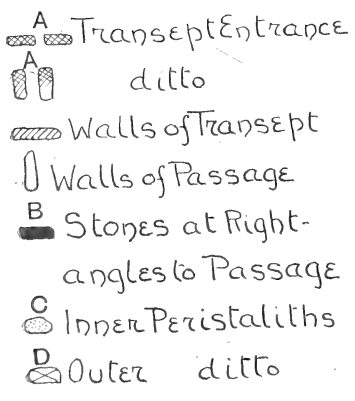 A Transept Entrance
A ditto
Walls of Transept
Walls of Passage
B Stones at Right-
angles to Passage
C Inner Peristaliths
D Outer ditto